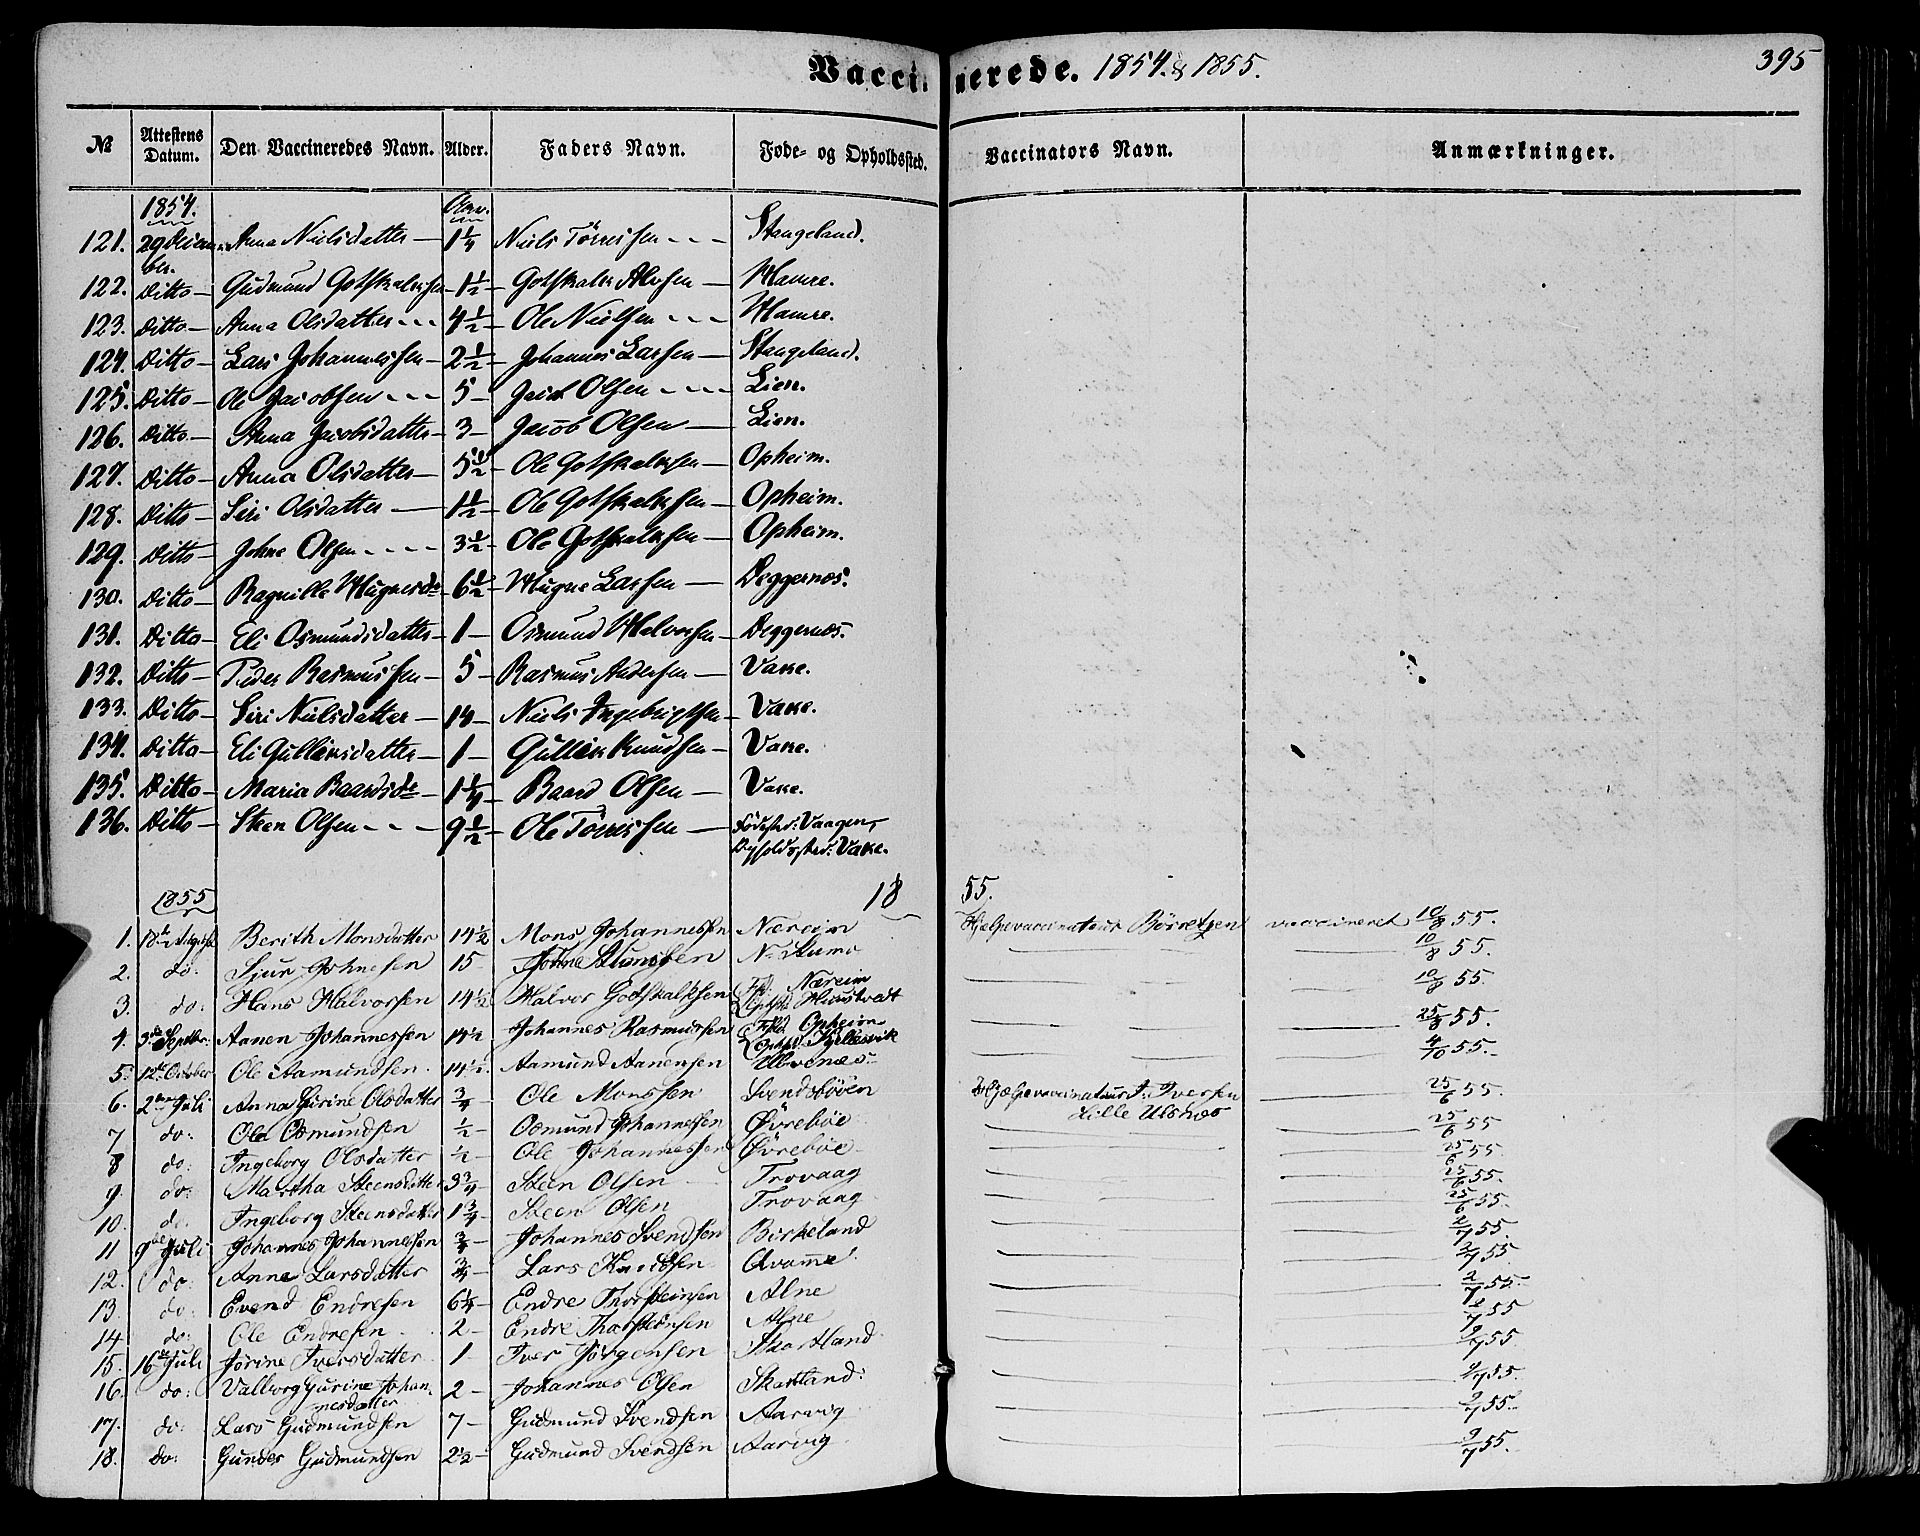 Vaccinerede. 1854. & 1855.
395
№ Attestens Datum. Den Vaccineredes Navn. Alder. Faders Navn. Føde- og Opholdssted. Vaccinators Navn. Anmærkninger.
1854. Aar.
121. 29 Decem- Anna Nielsdatter — 1 1/4 Niels Tørrissen - - - Stangeland.
ber.
122. Ditto — Gudmund Gotskalksen — 1 1/2 — Gotskalk Alvsen — Hamre.
123. Ditto — Anna Olsdatter - - - 4 1/2 — Ole Nielsen - - - Hamre.
124. Ditto — Lars Johannessen — 2 1/2 — Johannes Larsen — Stangeland.
125. Ditto — Ole Jacobsen - - - 5 — Jacob Olsen - - - Lien.
126. Ditto — Anna Jacobsdatter — 3 — Jacob Olsen — Lien.
127. Ditto — Anna Olsdatter — 5 1/2 — Ole Gotskalksen — Opheim.
128. Ditto — Siri Olsdatter — 1 1/2 — Ole Gotskalksen — Opheim.
129. Ditto — Johne Olsen - - - - 3 1/2 — Ole Gotskalksen — Opheim.
130. Ditto — Ragnille Hugnesdr — 6 1/2 — Hugne Larsen — Deggernæs.
131. Ditto — Eli Osmundsdatter — 1 — Osmund Halvorsen — Deggernæs.
132. Ditto — Peder Rasmussen — 5 — Rasmus Andersen — Vake.
133. Ditto — Siri Nielsdatter — 14 — Niels Ingebrigtsen — Vake.
134. Ditto — Eli Gulleksdatter — 1 — Gullek Knudsen — Vake.
135. Ditto — Maria Baardsdr — 1 1/4 — Baard Olsen — Vake.
136. Ditto — Steen Olsen - - - 9 1/2 — Ole Tørrissen — Fødested: Vaagen,
Opholdssted: Vake.
1855 1855.
1. 18de August Berith Monsdatter 14 1/2 Mons Johannessen Næreim Hjelpevaccinateur Børretzen vaccineret 10/8 55.
2. do: Sjur Johnesen 15 — Johne N. Stumo — — 10/8 55.
3. do: Hans Halvorsen 14 1/2 Halvor Godskalksen Fsd. Næreim — — 10/8 55.
Ophsd
4. 3de Septbr: Aanen Johannessen 14 1/2 Johannes Rasmussen Fsd. Opheim — — 25/8 55.
Ophsd
5. 12te October Ole Aamundsen. 14 1/2. Aamund Aanensen Ulvenæs. — — 4/10 55.
6. 2den Juli Anna Gurine Olsdatter 3/4 — Ole Monssen Svendsbøen Hjelpevaccinateur I. Iversen — 25/6 55.
Lille
7 do: Ole Osmundsen 1/2 — Osmund Johannessen Øvrebøe — — 25/6 55
8 do: Ingeborg Olsdatter 1/2 — Ole Johannessen Øvrebøe — — 25/6 55.
9. do: Martha Steensdatter 3 3/4 Steen Olsen Trovaag — — 25/6 55.
10. do. Ingeborg Steensdatter 1 3/4 — Steen Olsen Trovaag — — 25/6 55.
11 9de Juli Johannes Johannessen 3/4 — Johannes Svendsen Birkeland — — 2/7 55.
12. do: Anna Larsdatter 3/4 — Lars Knudsen Qvamme — — 2/7 55.
13. do: Evend Endresen 6 1/4 — Endre Thorsteinsen Alne — — 2/7 55.
14. do: Ole Endresen 2 — Endre Thorsteinsen Alne — — 2/7 55
15. 16de Juli Jorine Iversdatter 1 — Iver Jørgensen Skartland. — — 9/7 55.
16. do: Valborg Gurine Johan- 2 — Johannes Olsen Skartland: — — 9/7 55.
nesdatter
17. do: Lars Gudmundsen 7 — Gudmund Svendsen Aarvig — — 9/7 55.
18. do: Gunder Gudmundsen 2 1/2 — Gudmund Svendsen Aarvig — — 9/7 55.